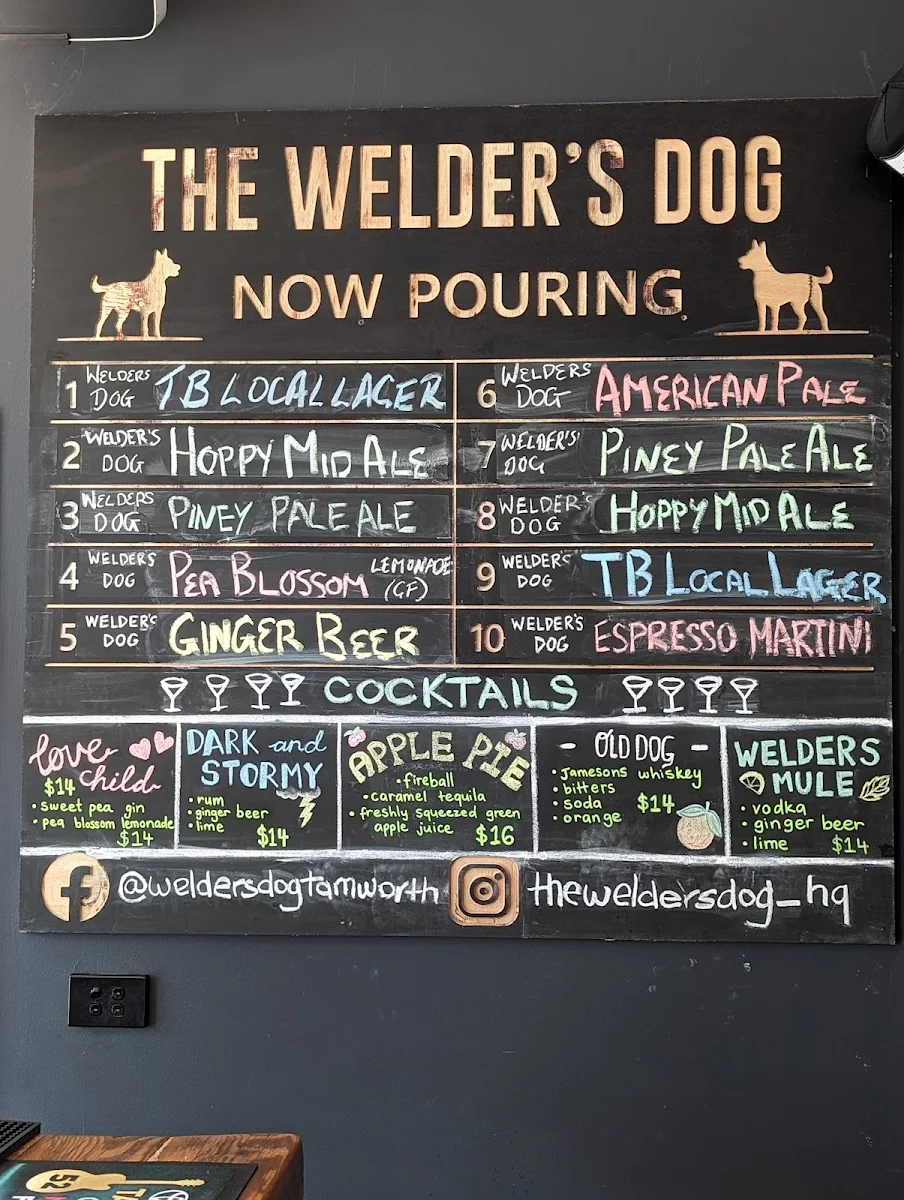 THE WELDER'S DOG
NOW POURING
1 WELDERS DOG TB LOCAL LAGER
2 WELDER'S DOG HOPPY MID ALE
3 WELDERS DOG PINEY PALE ALE
4 WELDER'S DOG PEA BLOSSOM LEMONADE (GF)
5 WELDER'S DOG GINGER BEER
6 WELDERS DOG AMERICAN PALE
7 WELDER'S DOG PINEY PALE ALE
8 WELDER'S DOG HOPPY MID ALE
9 WELDER'S DOG TB LOCAL LAGER
10 WELDER'S DOG ESPRESSO MARTINI
COCKTAILS
love
$14 child
• sweet pea gin
• pea blossom lemonade
$14
DARK and
STORMY
• rum
• ginger beer
• lime $14
APPLE PIE
• fireball
• caramel tequila
• freshly squeezed green
apple juice $16
- OLD DOG -
• Jamesons whiskey
• bitters
• soda $14
• orange
WELDERS
MULE
• vodka
• ginger beer
• lime $14
@weldersdogtamworth
theweldersdog_hq
52